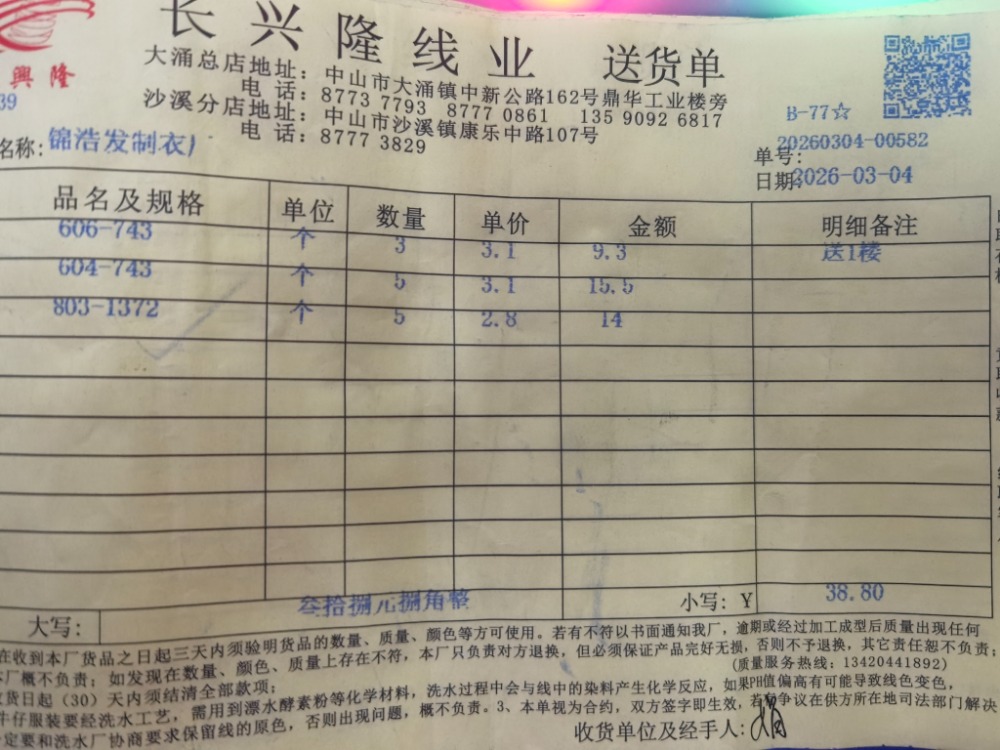 长兴隆线业 送货单
興隆
大涌总店地址：中山市大涌镇中新公路162号鼎华工业楼旁
电 话：8773 7793 8777 0861 135 9092 6817
沙溪分店地址：中山市沙溪镇康乐中路107号
电 话：8777 3829
39
B-77☆
名称：锦浩发制衣厂
单号：20260304-00582
日期：2026-03-04
品名及规格 单位 数量 单价 金额 明细备注
606-743 个 3 3.1 9.3 送1楼
604-743 个 5 3.1 15.5
803-1372 个 5 2.8 14
大写： 叁拾捌元捌角整 小写：￥ 38.80
在收到本厂货品之日起三天内须验明货品的数量、质量、颜色等方可使用。若有不符以书面通知我厂，逾期或经过加工成型后质量出现任何
本厂概不负责；如发现在数量、颜色、质量上存在不符，本厂只负责对方退换，但必须保证产品完好无损，否则不予退换，其它责任恕不负责；
(质量服务热线：13420441892)
货日起（30）天内须结清全部款项；
牛仔服装要经洗水工艺，需用到漂水酵素粉等化学材料，洗水过程中会与线中的染料产生化学反应，如果PH值偏高有可能导致线色变色，
定要和洗水厂协商要求保留线的原色，否则出现问题，概不负责。3、本单视为合约，双方签字即生效，若有争议在供方所在地司法部门解决
收货单位及经手人：